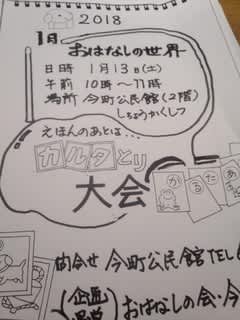 2018
1月
おはなしの世界
日時 1月13日(土)
午前 10時～11時
場所 今町公民館(2階)
しちょうかくしつ
えほんのあとは…
カルタとり
大会
かるたあ
問合せ 今町公民館TEL
(企画
おはなしの会・今